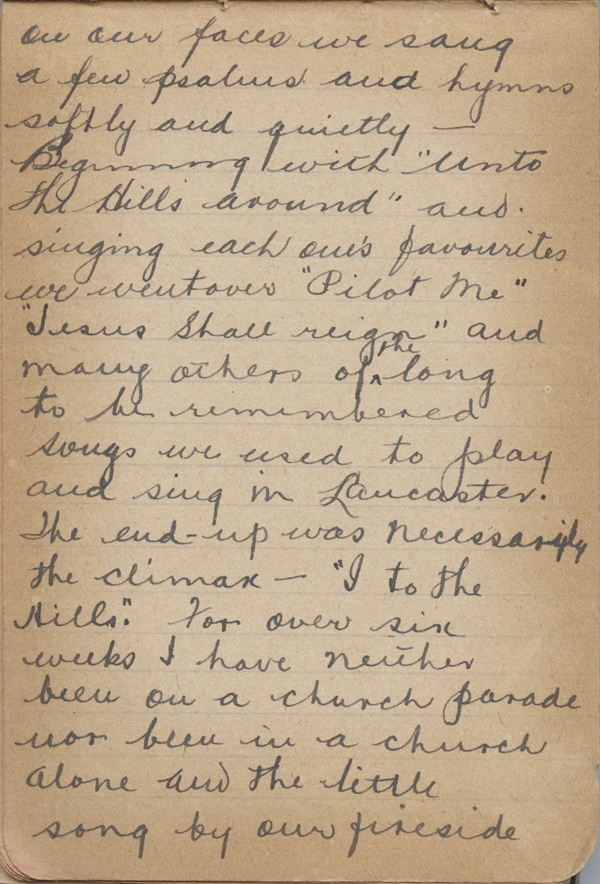 on our faces we sang
a few psalms and hymns
softly and quietly —
Beginning with "Unto
the Hills around" and
singing each one's favourites
we went over "Pilot Me"
"Jesus Shall reign" and
many others of the long
to be remembered
songs we used to play
and sing in Lancaster.
The end-up was necessarily
the climax — "I to the
Hills". For over six
weeks I have neither
been on a church parade
nor been in a church
alone and the little
song by our fireside